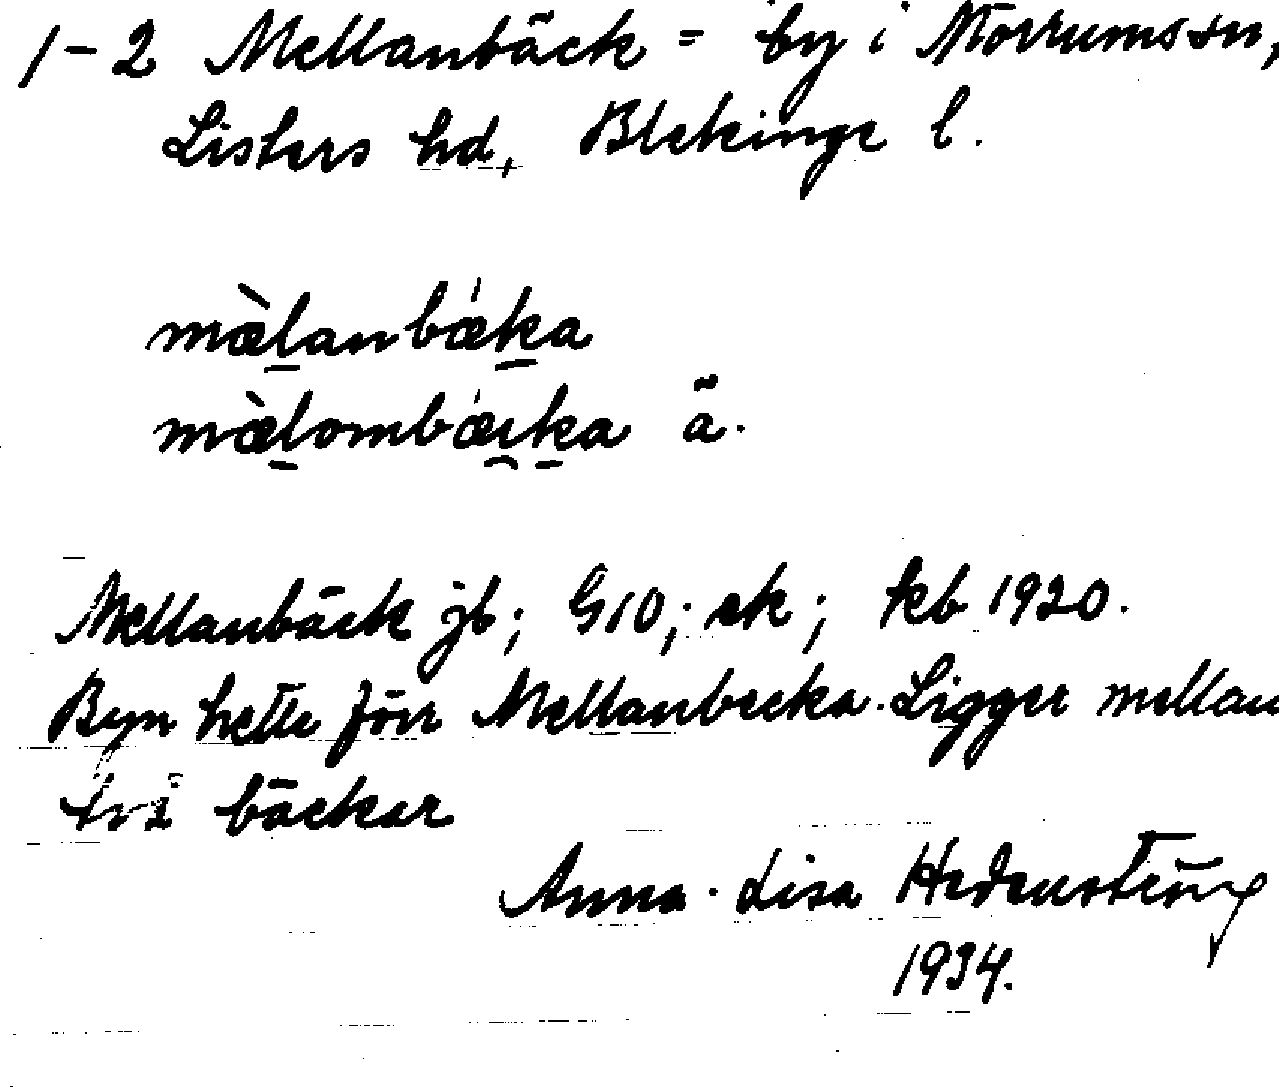 1-2 Mellanbäck = by i Mörrums sn,
Listers hd, Blekinge l.
mæ̀l̠anbǽk̠a
mæ̀l̠ombǽi̯k̠a ä.
Mellanbäck jb; G10; ek; tkb 1920.
Byn hette förr Mellanbecka. Ligger mellan
två bäckar
Anna-Lisa
1934.